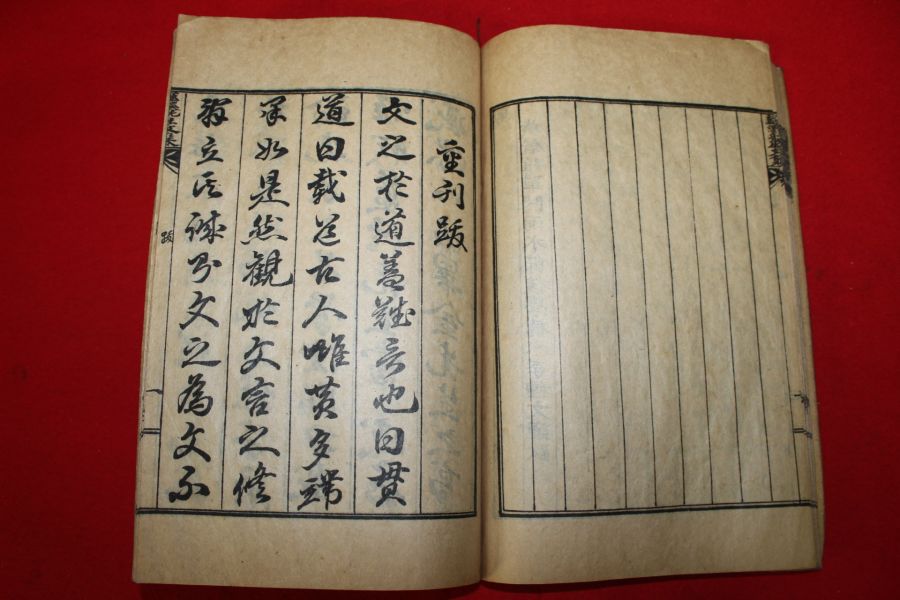 重刊跋
文之於道蓋難言也曰貫
道曰載道古人多端
如是然觀於文言之修
辭立其誠則文之為文不
跋
一